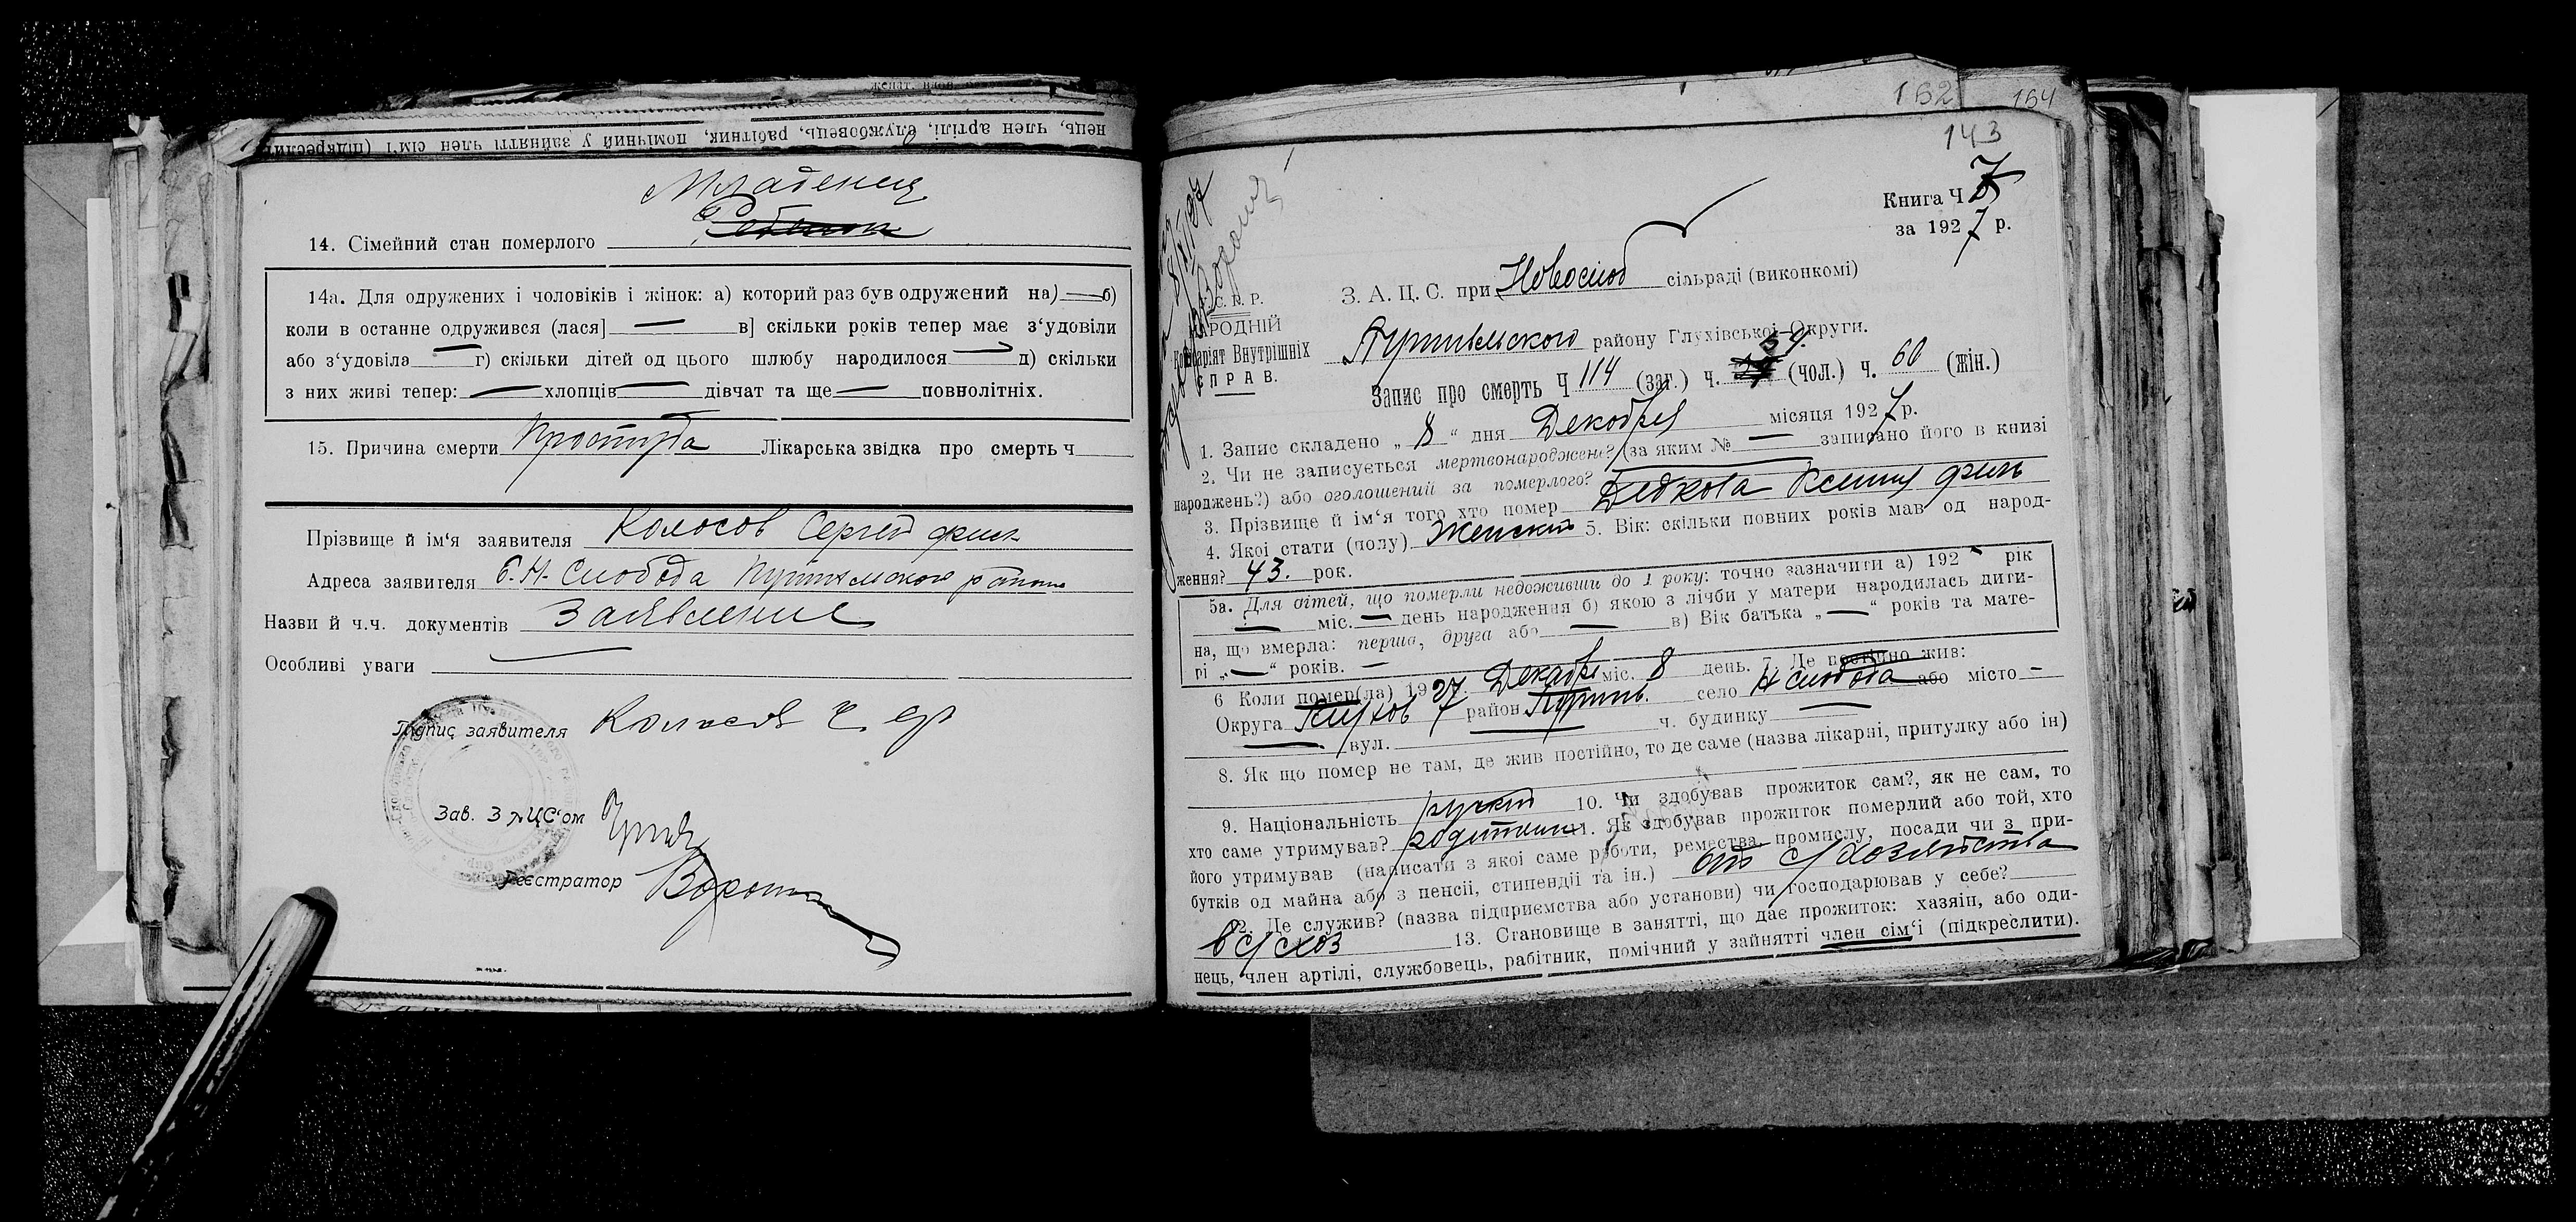 нець, член артілі, службовець, рабітник, помічний у зайнятті член сім'ї (підкреслить
Младенец
14. Сімейний стан померлого Ребенок
14а. Для одружених і чоловіків і жінок: а) которий раз був одружений на) — б)
коли в останне одружився (лася] — в] скільки років тепер має з'удовіли
або з'удовіла — г) скільки дітей од цього шлюбу народилося — д) скільки
з них живі тепер: — хлопців — дівчат та ще — повнолітніх.
15. Причина смерти Простуда Лікарська звідка про смерть ч
Прізвище й ім'я заявителя Колосов Сергей
Адреса заявителя С. Н. Слобода Путивльского района
Назви й ч.ч. документів Заявление
Особливі уваги —
Підпис заявителя Колосов С
Зав. ЗАЦС'ом
Реєстратор
152 154
143
Книга Ч 7
за 1927 р.
З. А. Ц. С. при Новослоб сільраді (виконкомі)
У. С. Р. Р.
НАРОДНІЙ
Комісаріят Внутрішніх
СПРАВ.
Путивльского району Глухівської Округи.
Запис про смерть Ч 114 (заг.) ч. 54 (чол.) ч. 60 (жін.)
1. Запис складено „ 8 " дня Декабря місяця 1927 р.
2. Чи не записується мертвонароджене? (за яким № — записано його в книзі
народжень?) або оголошений за померлого? —
3. Прізвище й ім'я того хто помер Дедкова Ксения
4. Якої стати (полу) Женский 5. Вік: скільки повних років мав од народ-
ження? 43. рок.
5а. Для дітей, що померли недоживши до 1 року: точно зазначити а) 192 - рік
— міс. — день народження б) якою з лічби у матери народилась дити-
на, що вмерла: перша, друга або — в) Вік батька „ — " років та мате-
рі „ — " років. —
6 Коли помер(ла) 1927 Декабр міс. 8 день. 7. Де постійно жив:
Округа Глухов район Путивль. село Н Слобода або місто —
— вул. — ч. будинку —
8. Як що помер не там, де жив постійно, то де саме (назва лікарні, притулку або ін)
9. Національність руский 10. Чи здобував прожиток сам?, як не сам, то
хто саме утримував? родители 11. Як здобував прожиток померлий або той, хто
його утримував (написати з якої саме роботи, ремества, промислу, посади чи з при-
бутків од майна або з пенсії, стипендії та ін.) от с/хозяйства
12. Де служив? (назва підприємства або установи) чи господарював у себе?
в с/хоз 13. Становище в занятті, що дає прожиток: хазяін, або оди-
нець, член артілі, службовець, рабітник, помічний у зайнятті член сім'ї (підкреслити).